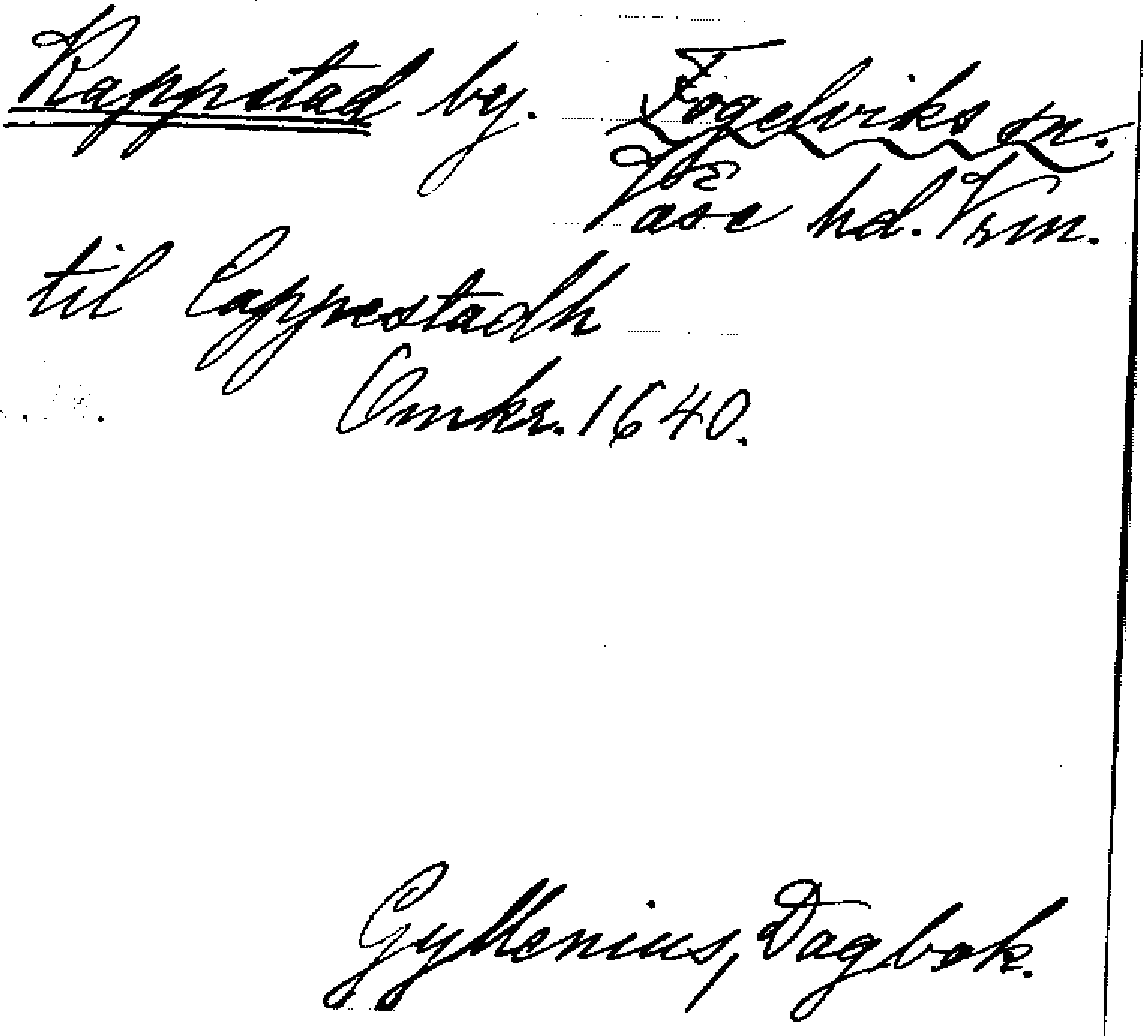 Kappstad by. Fogelviks sn.
Väse hd. Vrm.
til Cappestadh
Omkr. 1640.
Gyllenius, Dagbok.